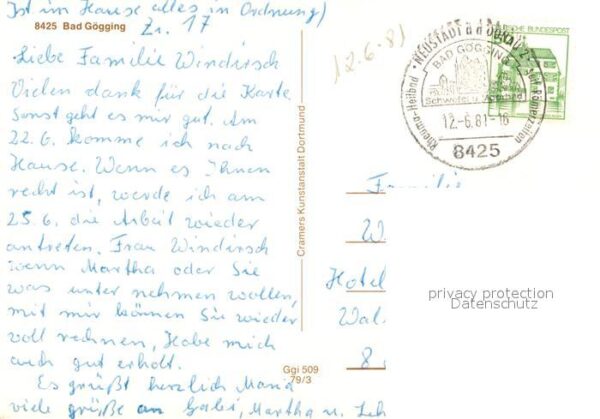 Ist im Hause alles in Ordnung)
Zi. 17
8425 Bad Gögging
Liebe Familie Windirsch
Vielen dank für die Karte
Sonst geht es mir gut. Am
22.6. komme ich nach
Hause. Wenn es Ihnen
recht ist, werde ich am
25.6. die Arbeit wieder
antreten. Frau Windirsch
wenn Martha oder Sie
was unter nehmen wollen,
mit mir können Sie wieder
voll rechnen, Habe mich
auch gut erholt.
Es grüßt herzlich Maria
viele grüße an Gabi, Martha u.
Cramers Kunstanstalt Dortmund
Ggi 509
79/3
12.6.81
NEUSTADT a d DONAU 2
BAD GÖGGING
Rheuma-Heilbad
seit Römerzeiten
12.-6.81.-16
8425
DEUTSCHE BUNDESPOST
Familie
W
Hotel
Wal
8
privacy protection
Datenschutz